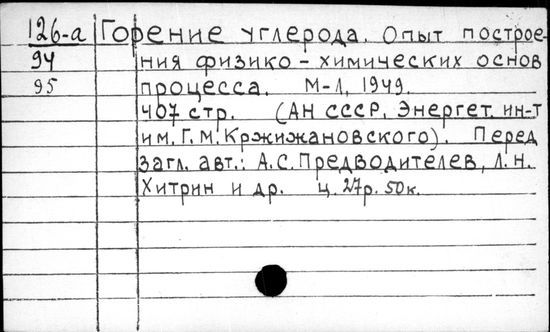 126-а Горение углерода. Опыт построе-
94 ния физико-химических основ
95 процесса. М-Л, 1949.
407 стр. (АН СССР, Энергет. ин-т
им. Г. М. Кржижановского). Перед
загл. авт.: А.С. Предводителев, Л. Н.
Хитрин и др. ц. 27р. 50к.